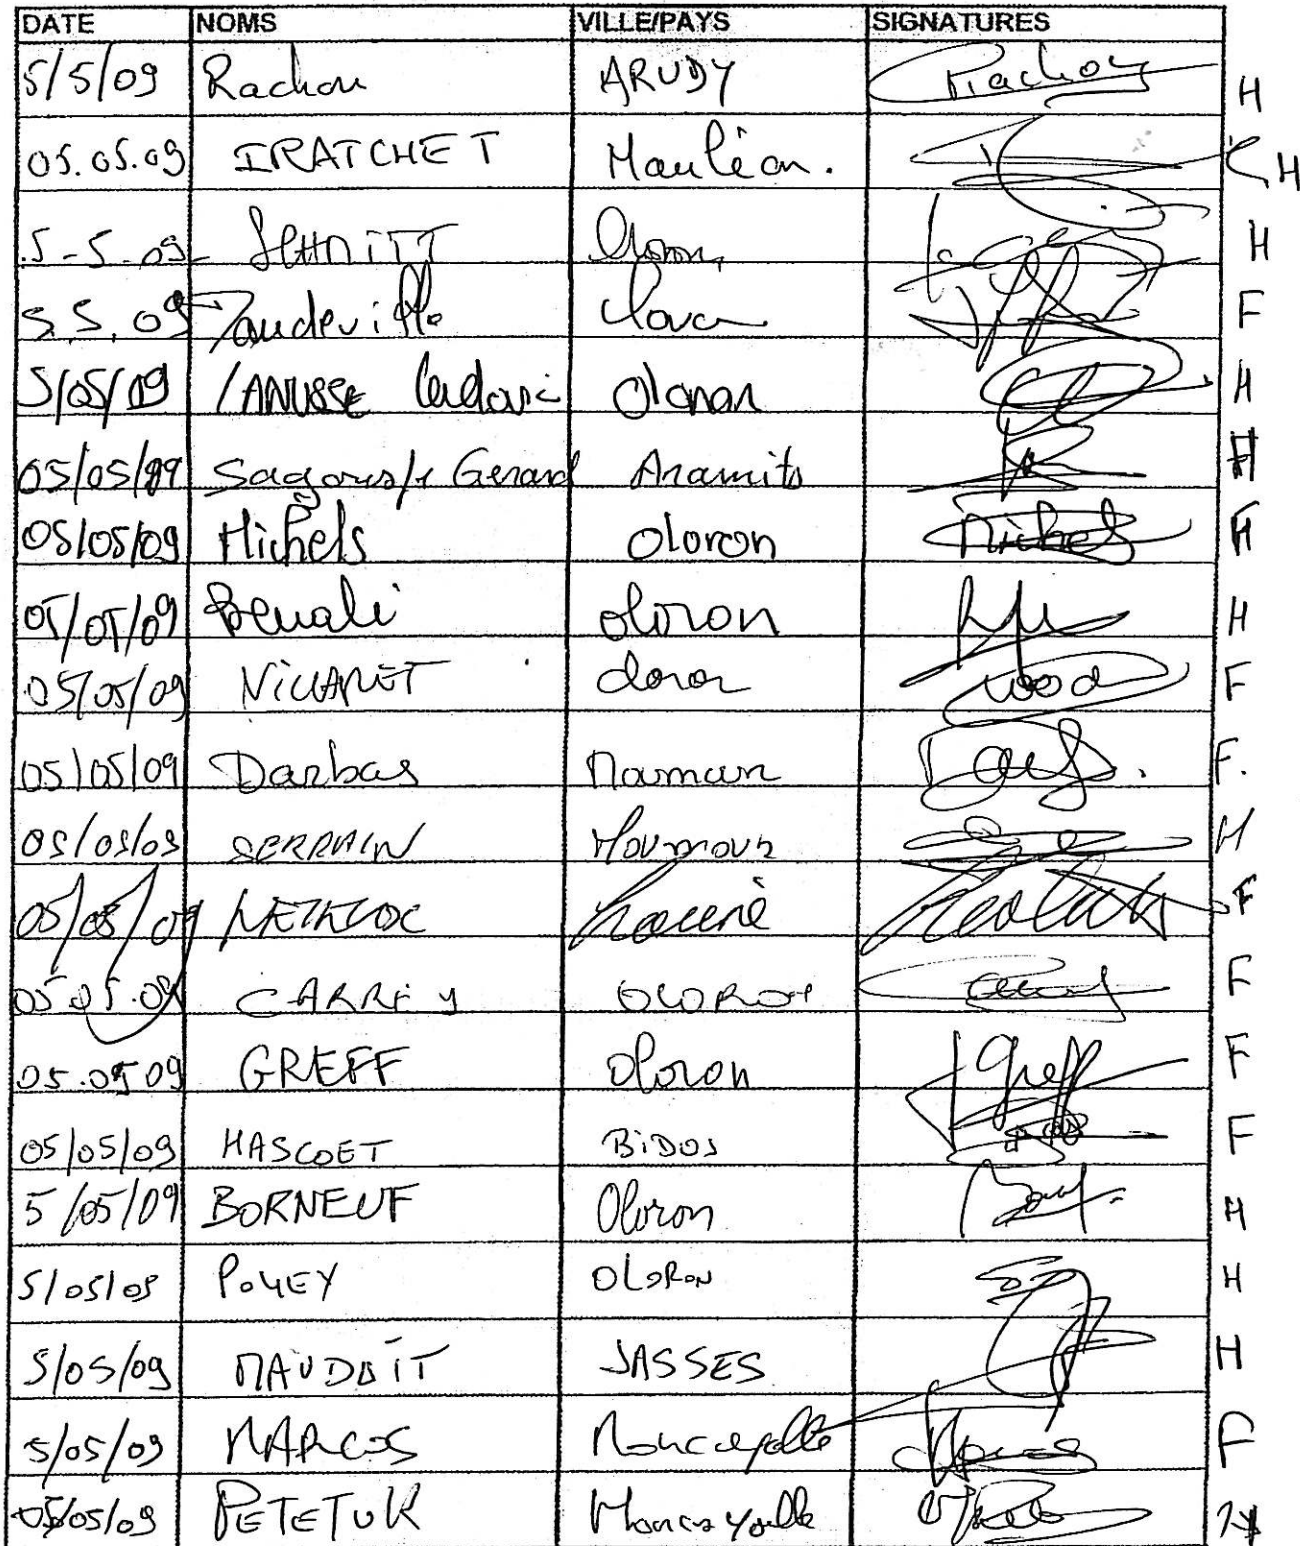 DATE NOMS VILLE/PAYS SIGNATURES
5/5/09 Rachou ARUDY Rachou H
05.05.09 IRATCHET Mauléon. H
5-5-09 SCHMITT Oloron H
5.5.09 F
5/05/09 LANUSSE Ludovic Oloron H
05/05/09 Gerard Aramits H
05/05/09 Michels Oloron Michels H
05/05/09 Benali oloron H
05/05/09 oloron F
05/05/09 Darbas F.
05/05/09 SERRAIN Moumour H
05/05/09 F
05.05.09 CARREY OLORON F
05.05 09 GREFF Oloron Greff F
05/05/09 HASCOET BiDOS F
5/05/09 BORNEUF Oloron H
5/05/09 POUEY OLORON H
5/05/09 MAUDOIT JASSES H
5/05/09 MARCOS Moncayolle F
05/05/09 PETETUK Moncayolle